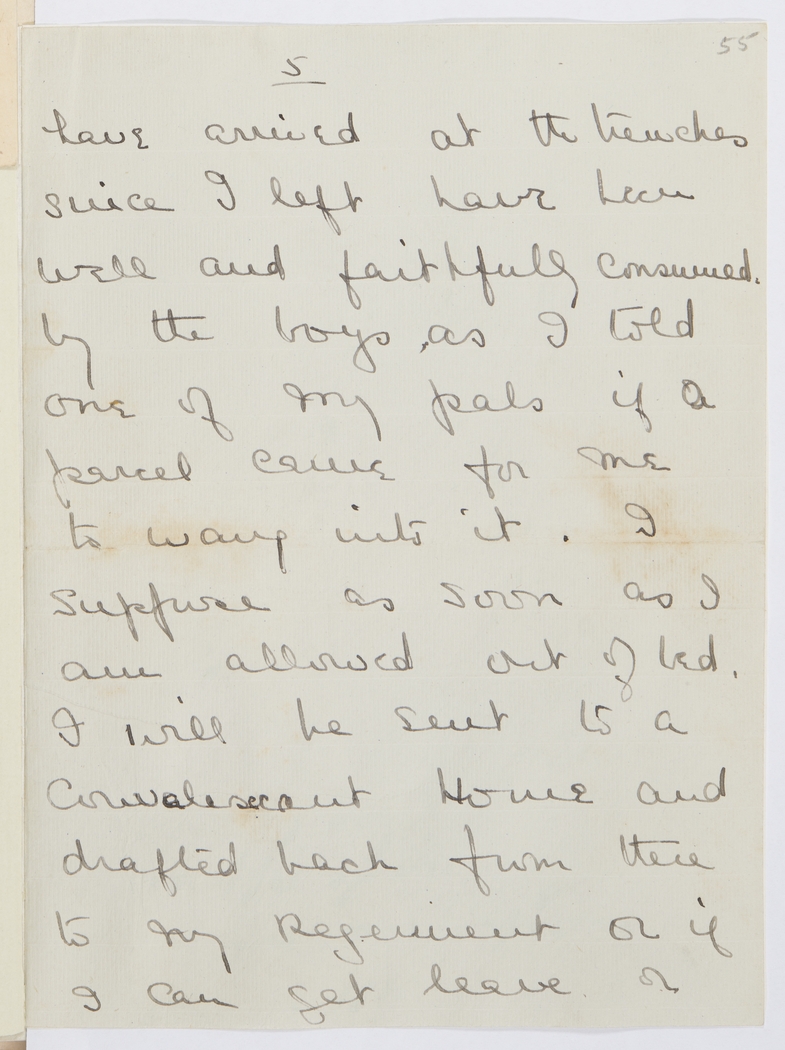 55
5
have arrived at the trenches
since I left have been
well and faithfully consumed.
by the boys, as I told
one of my pals if a
parcel came for me
to wang into it. I
suppose as soon as I
am allowed out of bed.
I will be sent to a
Convalescant Home and
drafted back from there
to my Regement or if
I can get leave or